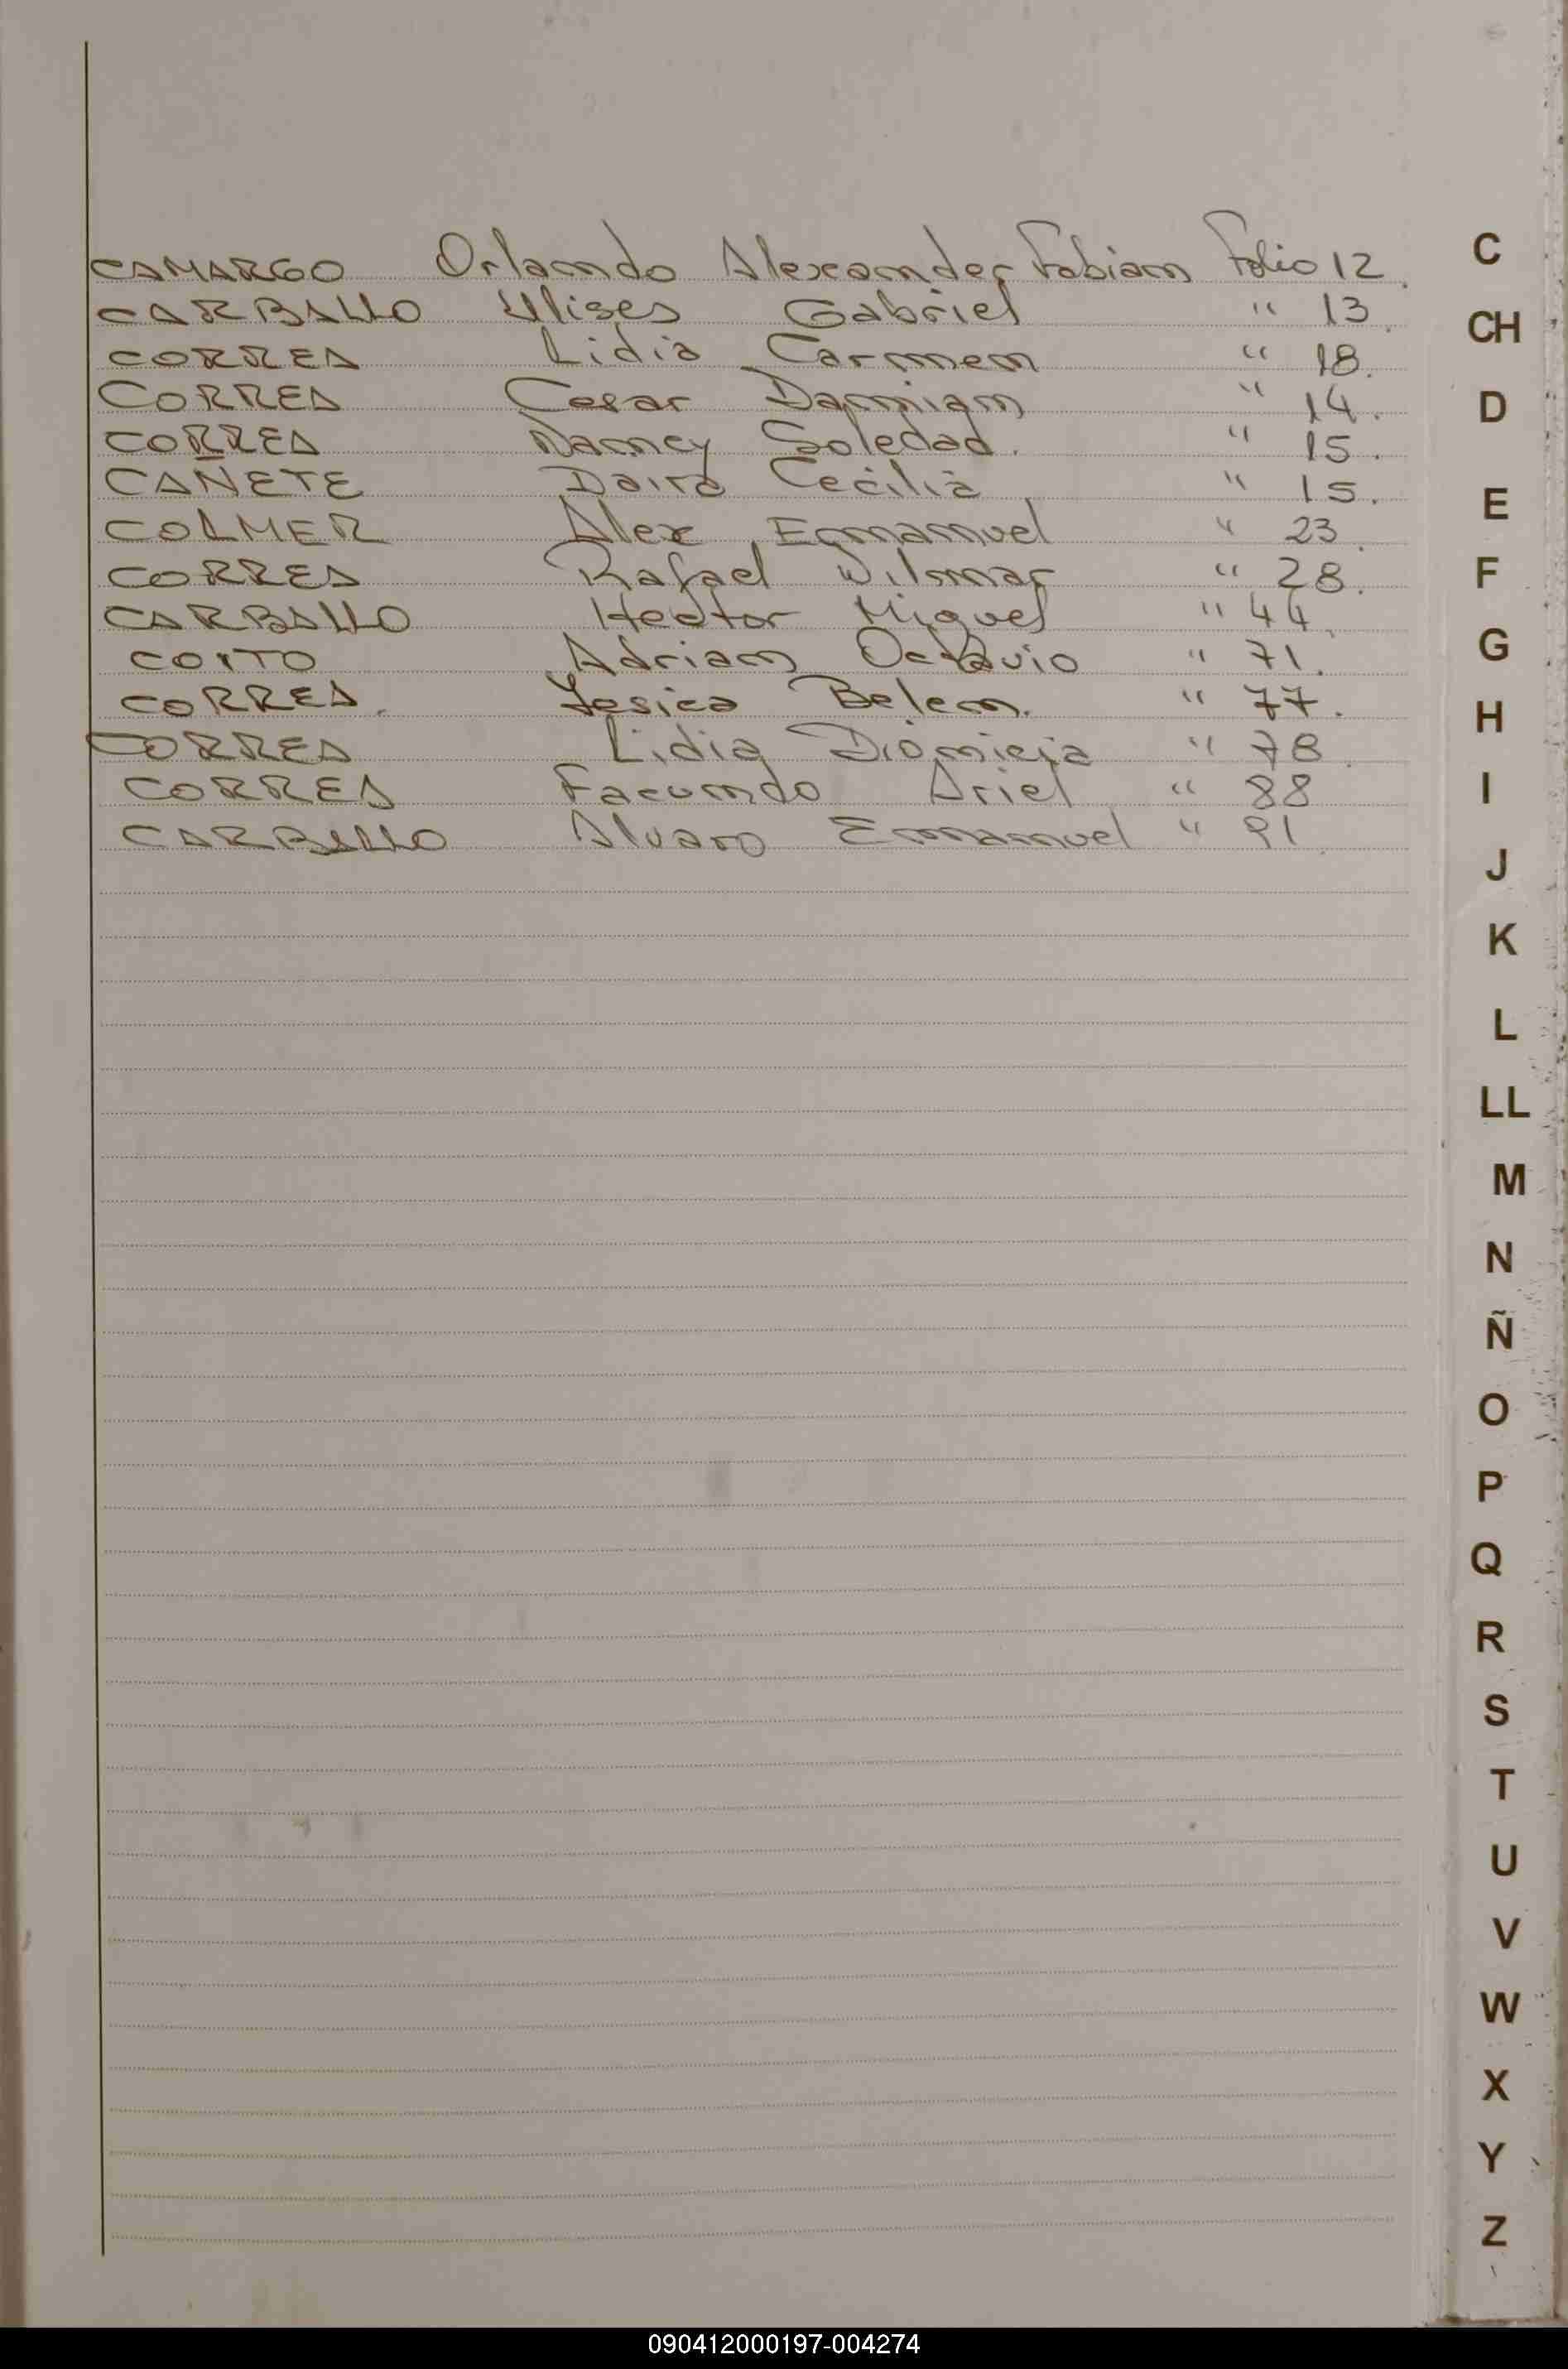 CAMARGO Orlando Alexander Fabian Folio 12.
CARBALLO Ulises Gabriel " 13.
CORREA Lidia Carmen " 18.
CORREA Cesar Damian " 14.
CORREA Nancy Soledad. " 15.
CAÑETE Daira Cecilia " 15.
COLMER Alex Emmanuel " 23.
CORREA Rafael Wilmar " 28.
CARBALLO Hector Miguel " 44.
COITO Adrian Octavio " 71.
CORREA. Yesica Belen. " 77.
CORREA Lidia " 78.
CORREA Facundo Ariel " 88
CARBALLO Alvaro Emmanuel " 91.
C
CH
D
E
F
G
H
I
J
K
L
LL
M
N
Ñ
O
P
Q
R
S
T
U
V
W
X
Y
Z
090412000197-004274